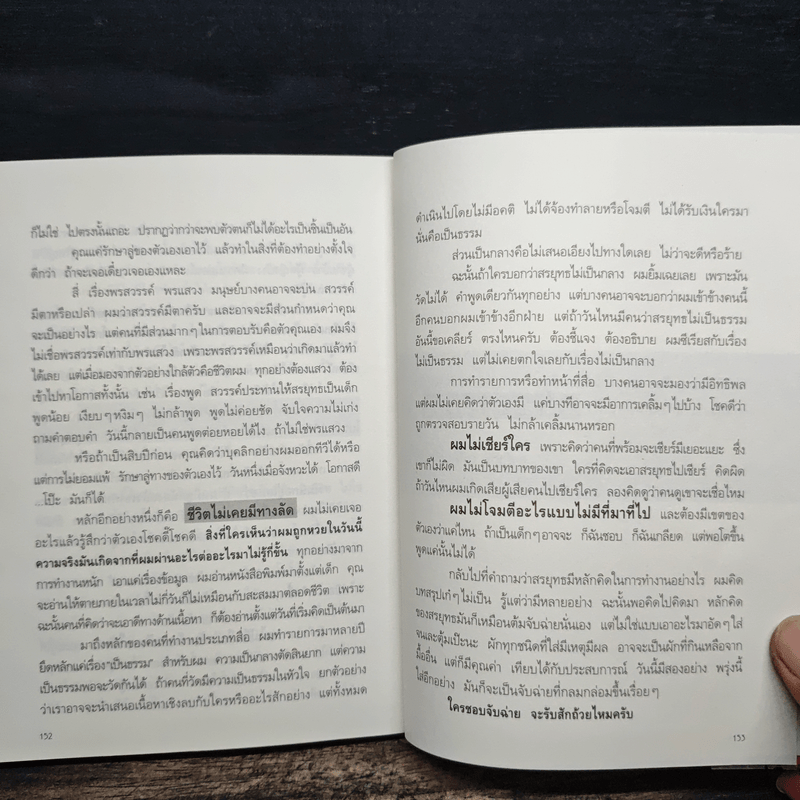 ก็ไม่ใช่ ไปตรงนั้นเถอะ ปรากฏว่ากว่าจะพบตัวตนก็ไม่ได้อะไรเป็นชิ้นเป็นอัน
คุณแค่รักษาลู่ของตัวเองเอาไว้ แล้วทำในสิ่งที่ต้องทำอย่างตั้งใจ
ดีกว่า ถ้าจะเจอเดี๋ยวเจอเองแหละ
สี่ เรื่องพรสวรรค์ พรแสวง มนุษย์บางคนอาจจะบ่น สวรรค์
มีตาหรือเปล่า ผมว่าสวรรค์มีตาครับ และอาจจะมีส่วนกำหนดว่าคุณ
จะเป็นอย่างไร แต่คนที่มีส่วนมากๆในการตอบรับคือตัวคุณเอง ผมจึง
ไม่เชื่อพรสวรรค์เท่ากับพรแสวง เพราะพรสวรรค์เหมือนว่าเกิดมาแล้วทำ
ได้เลย แต่เมื่อมองจากตัวอย่างใกล้ตัวคือชีวิตผม ทุกอย่างต้องแสวง ต้อง
เข้าไปหาโอกาสทั้งนั้น เช่น เรื่องพูด สวรรค์ประทานให้สรยุทธเป็นเด็ก
พูดน้อย เงียบๆหงิมๆ ไม่กล้าพูด พูดไม่ค่อยชัด จับใจความไม่เก่ง
ถามคำตอบคำ วันนี้กลายเป็นคนพูดต่อยหอยได้ไง ถ้าไม่ใช่พรแสวง
หรือถ้าเป็นสิบปีก่อน คุณคิดว่าบุคลิกอย่างผมออกทีวีได้หรือ
แต่การไม่ยอมแพ้ รักษาลู่ทางของตัวเองไว้ วันหนึ่งเมื่อจังหวะได้ โอกาสดี
...โป๊ะ มันก็ได้
หลักอีกอย่างหนึ่งก็คือ ชีวิตไม่เคยมีทางลัด ผมไม่เคยเจอ
อะไรแล้วรู้สึกว่าตัวเองโชคดี๊โชคดี สิ่งที่ใครเห็นว่าผมถูกหวยในวันนี้
ความจริงมันเกิดจากที่ผมผ่านอะไรต่ออะไรมาไม่รู้กี่ขั้น ทุกอย่างมาจาก
การทำงานหนัก เอาแค่เรื่องข้อมูล ผมอ่านหนังสือพิมพ์มาตั้งแต่เด็ก คุณ
จะอ่านให้ตายภายในเวลาไม่กี่วันก็ไม่เหมือนกับสะสมมาตลอดชีวิต เพราะ
ฉะนั้นคนที่คิดว่าจะเอาดีทางด้านเนื้อหา ก็ต้องอ่านตั้งแต่วันที่เริ่มคิดเป็นต้นมา
มาถึงหลักของคนที่ทำงานประเภทสื่อ ผมทำรายการมาหลายปี
ยึดหลักแค่เรื่อง"เป็นธรรม" สำหรับผม ความเป็นกลางตัดสินยาก แต่ความ
เป็นธรรมพอจะวัดกันได้ ถ้าคนที่วัดมีความเป็นธรรมในหัวใจ ยกตัวอย่าง
ว่าเราอาจจะนำเสนอเนื้อหาเชิงลบกับใครหรืออะไรสักอย่าง แต่ทั้งหมด
132
ดำเนินไปโดยไม่มีอคติ ไม่ได้จ้องทำลายหรือโจมตี ไม่ได้รับเงินใครมา
นั่นคือเป็นธรรม
ส่วนเป็นกลางคือไม่เสนอเอียงไปทางใดเลย ไม่ว่าจะดีหรือร้าย
ฉะนั้นถ้าใครบอกว่าสรยุทธไม่เป็นกลาง ผมยิ้มเฉยเลย เพราะมัน
วัดไม่ได้ คำพูดเดียวกันทุกอย่าง แต่บางคนอาจจะบอกว่าผมเข้าข้างคนนี้
อีกคนบอกผมเข้าข้างอีกฝ่าย แต่ถ้าวันไหนมีคนว่าสรยุทธไม่เป็นธรรม
อันนี้ขอเคลียร์ ตรงไหนครับ ต้องชี้แจง ต้องอธิบาย ผมซีเรียสกับเรื่อง
ไม่เป็นธรรม แต่ไม่เคยตกใจเลยกับเรื่องไม่เป็นกลาง
การทำรายการหรือทำหน้าที่สื่อ บางคนอาจจะมองว่ามีอิทธิพล
แต่ผมไม่เคยคิดว่าตัวเองมี แค่บางทีอาจจะมีอาการเคลิ้มๆไปบ้าง โชคดีว่า
ถูกตรวจสอบรายวัน ไม่กล้าเคลิ้มนานหรอก
ผมไม่เชียร์ใคร เพราะคิดว่าคนที่พร้อมจะเชียร์มีเยอะแยะ ซึ่ง
เขาก็ไม่ผิด มันเป็นบทบาทของเขา ใครที่คิดจะเอาสรยุทธไปเชียร์ คิดผิด
ถ้าวันไหนผมเกิดเสียผู้เสียคนไปเชียร์ใคร ลองคิดดูว่าคนดูเขาจะเชื่อไหม
ผมไม่โจมตีอะไรแบบไม่มีที่มาที่ไป และต้องมีเขตของ
ตัวเองว่าแค่ไหน ถ้าเป็นเด็กๆอาจจะ ก็ฉันชอบ ก็ฉันเกลียด แต่พอโตขึ้น
พูดแค่นั้นไม่ได้
กลับไปที่คำถามว่าสรยุทธมีหลักคิดในการทำงานอย่างไร ผมคิด
บทสรุปเก๋ๆไม่เป็น รู้แต่ว่ามีหลายอย่าง ฉะนั้นพอคิดไปคิดมา หลักคิด
ของสรยุทธมันก็เหมือนต้มจับฉ่ายนั่นเอง แต่ไม่ใช่แบบเอาอะไรมาอัดๆใส่
จนและตุ้มเป๊ะนะ ผักทุกชนิดที่ใส่มีเหตุมีผล อาจจะเป็นผักที่กินเหลือจาก
มื้ออื่น แต่ก็มีคุณค่า เทียบได้กับประสบการณ์ วันนี้มีสองอย่าง พรุ่งนี้
ใส่อีกอย่าง มันก็จะเป็นจับฉ่ายที่กลมกล่อมขึ้นเรื่อยๆ
ใครชอบจับฉ่าย จะรับสักถ้วยไหมครับ
133